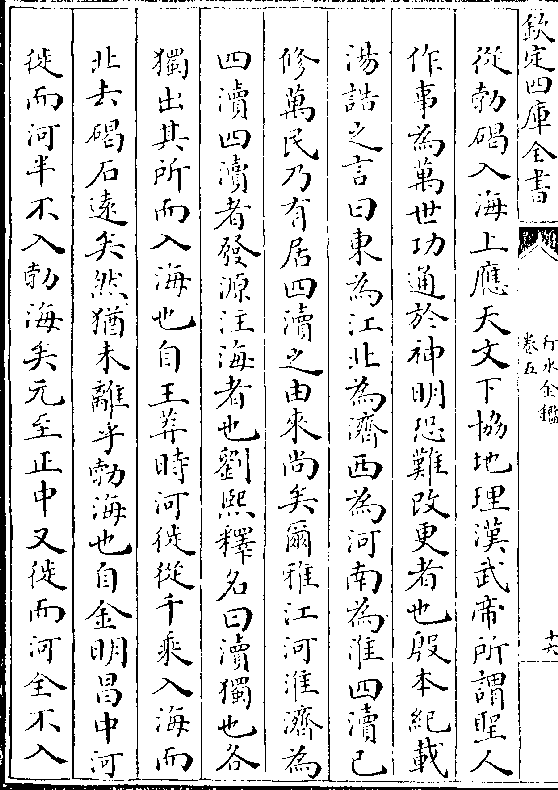 欽定四庫全書
行水金鑑
卷五
十六
從勃碣入海上應天文下協地理漢武帝所謂聖人
作事為萬世功通於神明恐難改更者也殷本紀載
湯誥之言曰東為江北為濟西為河南為淮四瀆已
修萬民乃有居四瀆之由來尚矣爾雅江河淮濟為
四瀆四瀆者發源注海者也劉熙釋名曰瀆獨也各
獨出其所而入海也自王莽時河徙從千乘入海而
北去碣石遠矣然猶未離乎勃海也自金明昌中河
徙而河半不入勃海矣元至正中又徙而河全不入